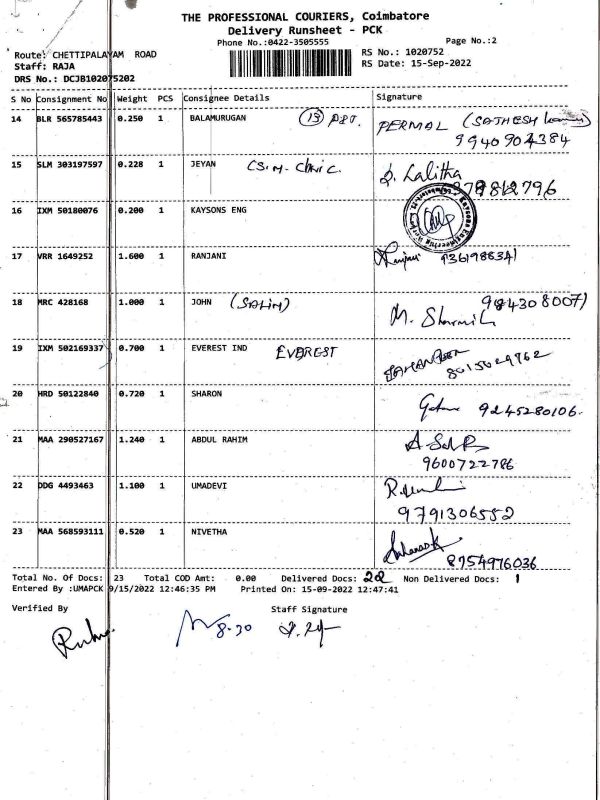 THE PROFESSIONAL COURIERS, Coimbatore
Delivery Runsheet - PCK
Phone No.:0422-3505555
Page No.:2
Route: CHETTIPALAYAM ROAD
RS No.: 1020752
Staff: RAJA
RS Date: 15-Sep-2022
DRS No.: DCJB102075202
S No Consignment No Weight PCS Consignee Details Signature
14 BLR 565785443 0.250 1 BALAMURUGAN PERMAL
9940904384
15 SLM 303197597 0.228 1 JEYAN Lalitha
16 IXM 50180076 0.200 1 KAYSONS ENG
17 VRR 1649252 1.600 1 RANJANI
18 MRC 428168 1.000 1 JOHN (SALIM) 9843080071
19 IXM 502169337 0.700 1 EVEREST IND EVEREST
8015029762
20 HRD 50122840 0.720 1 SHARON 9245280106
21 MAA 290527167 1.240 1 ABDUL RAHIM
9600722786
22 DDG 4493463 1.100 1 UMADEVI
9791306552
23 MAA 568593111 0.520 1 NIVETHA
8754976036
Total No. Of Docs: 23 Total COD Amt: 0.00 Delivered Docs: 22 Non Delivered Docs: 1
Entered By :UMAPCK 9/15/2022 12:46:35 PM Printed On: 15-09-2022 12:47:41
Verified By Staff Signature
8-30